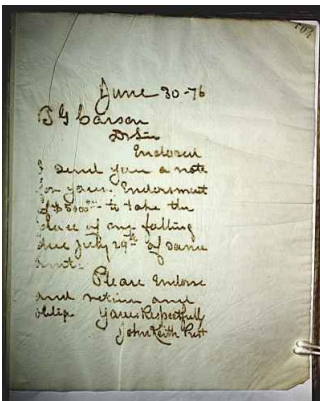 June 30-76
T G Carson
Dr Sir
Enclosed
I send you a note
for your Endorsement
of $5000 to take the
place of one falling
due July 29th of same
amt.
Please Endorse
and return and
oblige Yours Respectfully
John Keith Prest